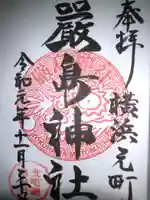 奉拝 横浜元町
厳島神社
令和元年十一月三十日